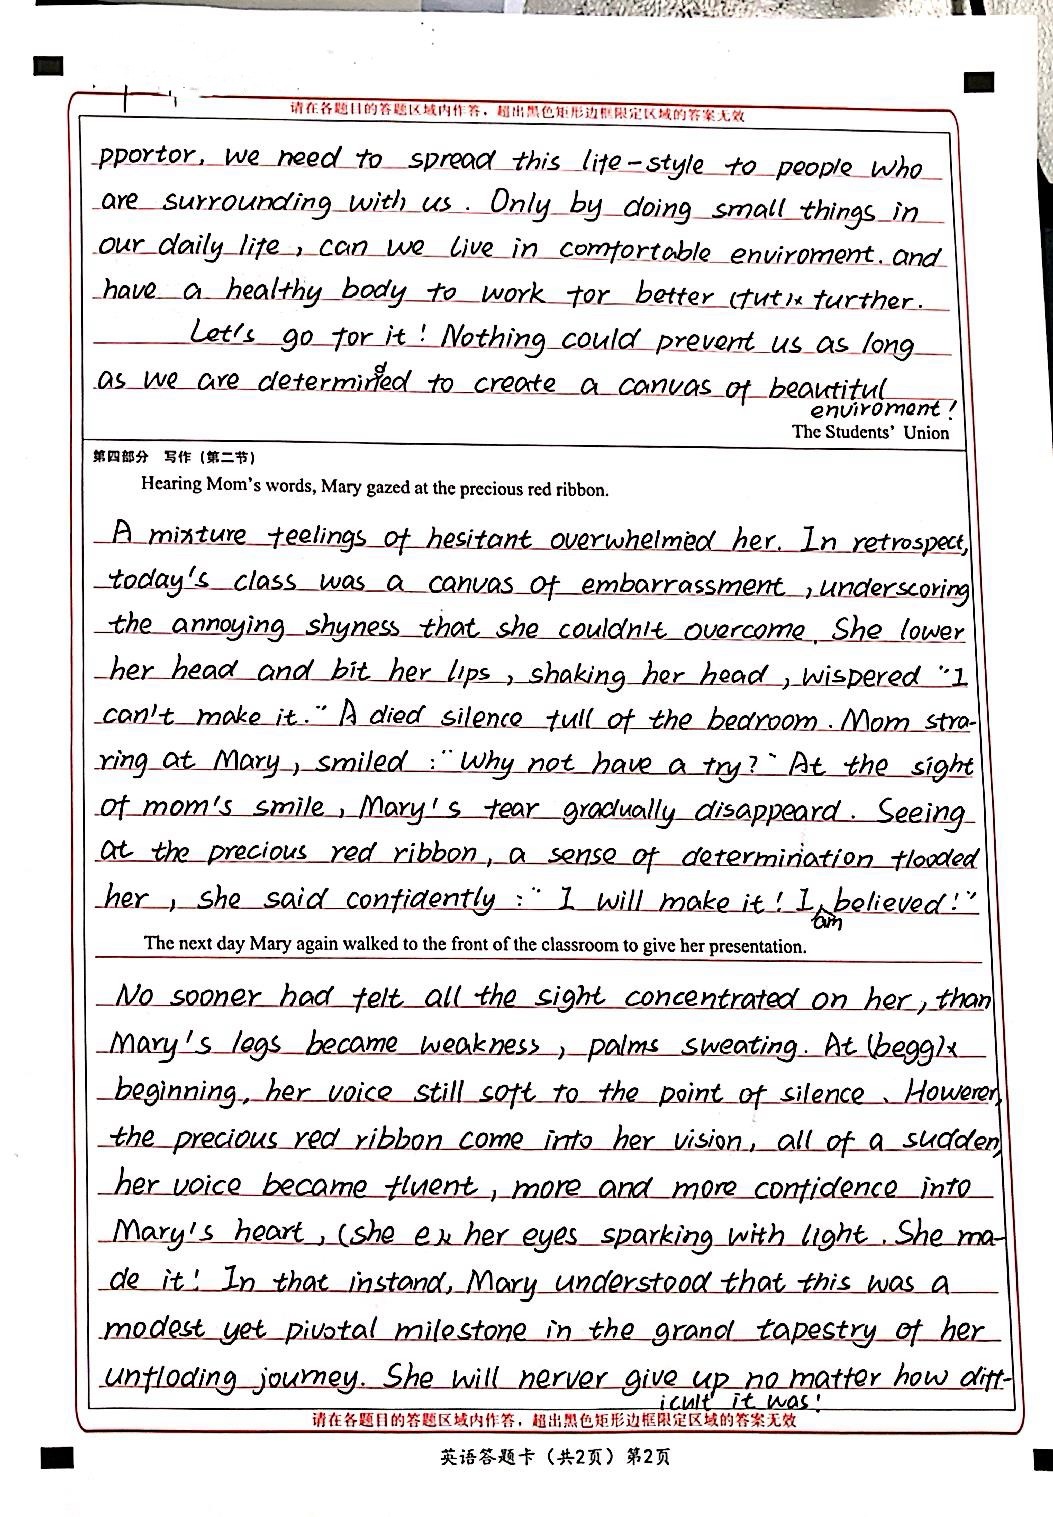 请在各题目的答题区域内作答，超出黑色矩形边框限定区域的答案无效
pportor, we need to spread this life-style to people who
are surrounding with us. Only by doing small things in
our daily life, can we live in comfortable enviroment. and
have a healthy body to work for better (fut)x further.
Let's go for it! Nothing could prevent us as long
as we are determinded to create a canvas of beautiful
enviroment!
The Students' Union
第四部分 写作（第二节）
Hearing Mom's words, Mary gazed at the precious red ribbon.
A mixture feelings of hesitant overwhelmed her. In retrospect,
today's class was a canvas of embarrassment, underscoring
the annoying shyness that she couldn't overcome. She lower
her head and bit her lips, shaking her head, wispered "I
can't make it." A died silence full of the bedroom. Mom stra-
ring at Mary, smiled: "Why not have a try?" At the sight
of mom's smile, Mary's tear gradually disappeard. Seeing
at the precious red ribbon, a sense of determination flooded
her, she said confidently: "I will make it! I am believed!"
The next day Mary again walked to the front of the classroom to give her presentation.
No sooner had felt all the sight concentrated on her, than
Mary's legs became weakness, palms sweating. At (begg)x
beginning, her voice still soft to the point of silence. Howerer,
the precious red ribbon come into her vision, all of a sudden,
her voice became fluent, more and more confidence into
Mary's heart, (she ex her eyes sparking with light. She ma-
de it! In that instand, Mary understood that this was a
modest yet pivotal milestone in the grand tapestry of her
unfloding journey. She will nerver give up no matter how diff-
icult it was!
请在各题目的答题区域内作答，超出黑色矩形边框限定区域的答案无效
英语答题卡（共2页）第2页